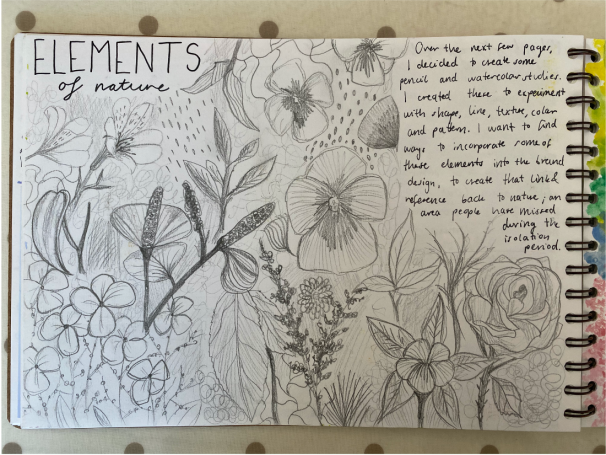 ELEMENTS
of nature
Over the next few pages,
I decided to create some
pencil and watercolor studies.
I created these to experiment
with shape, line, texture, color
and pattern. I want to find
ways to incorporate some of
these elements into the brand
design, to create that link &
reference back to nature; an
area people have missed
during the
isolation
period.